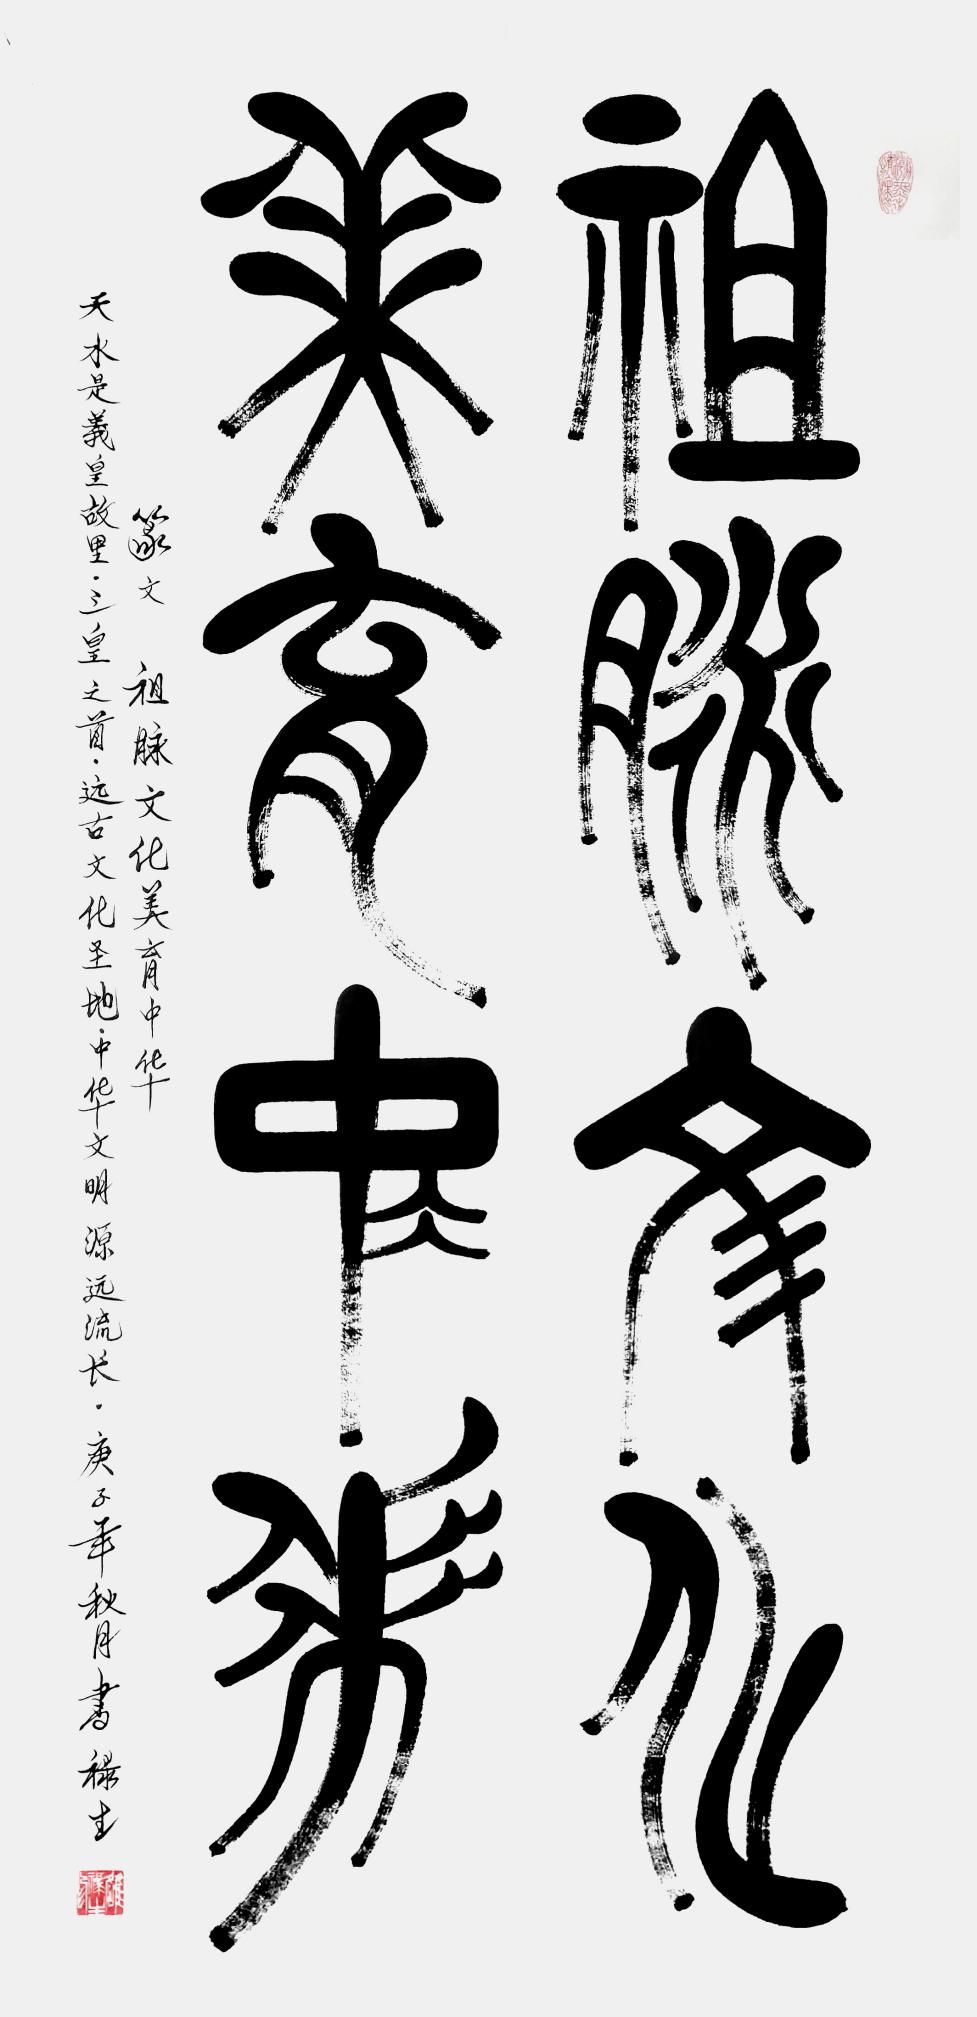 祖脈文化
美育中華
篆文 祖脉文化美育中华
天水是義皇故里·三皇之首·远古文化圣地·中华文明源远流长·庚子年秋月書 禄生